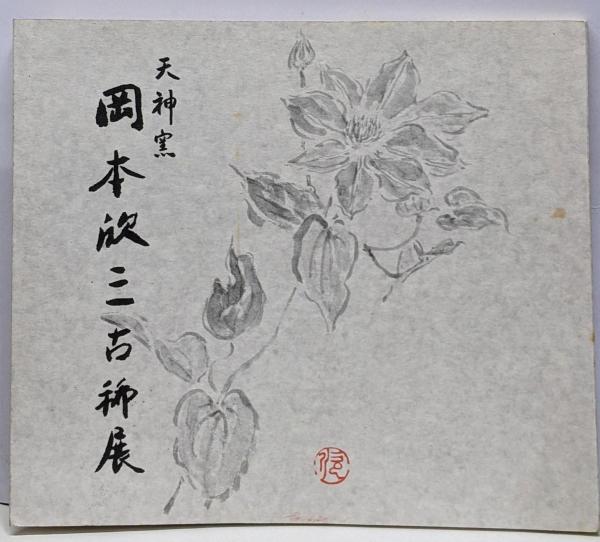 天神窯
岡本欣三古稀展